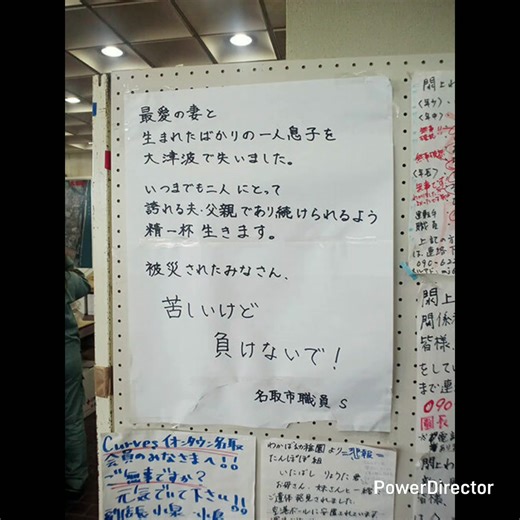 最愛の妻と
生まれたばかりの一人息子を
大津波で失いました。
いつまでも二人にとって
誇れる夫・父親であり続けられるよう
精一杯生きます。
被災されたみなさん、
苦しいけど
負けないで!
名取市職員 S
Curves イオンタウン名取
会員のみなさまへ!!
ご無事ですか?
元気でいて下さい!!
わかば幼稚園より 悲報
たんぽぽ組
いたばし りょうた 君
お母さん、妹さんと一緒
ご遺体発見されました。
閖上わ
職員
上記の方
は連絡下
閖上
関係
皆様、
をしてい
まで連
090
園長
皆様
PowerDirector